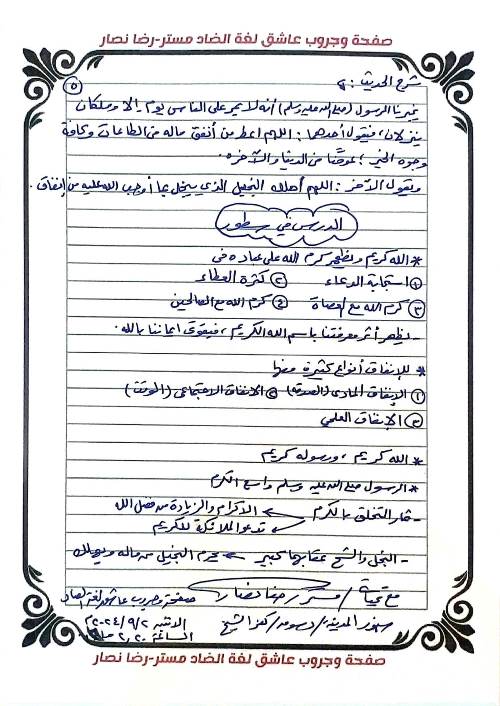 صفحة وجروب عاشق لغة الضاد مستر-رضا نصار
شرح الحديث :
٥
يخبرنا الرسول (صلى الله عليه وسلم) أنه لا يمر على الناس يوم إلا وملكان
ينزلان، فيقول أحدهما : اللهم اعط من أنفق ماله من الطاعات وكافة
وجوه الخير ؛ عوضًا من الدنيا والآخرة .
ويقول الآخر : اللهم أهلك البخيل الذي يبخل بما أوجب الله عليه من إنفاق .
الدرس في سطور
* الله كريم ويظهر كرم الله على عباده في
١ استجابة الدعاء ٢ كثرة العطاء
٣ كرم الله مع العصاة ٤ كرم الله مع الصالحين
- يظهر أثر معرفتنا باسم الله الكريم ، فيقوى إيماننا بالله .
* للإنفاق أنواع كثيرة منها
١ الإنفاق المادى (الصدقة) ٢ الانفاق الاجتماعى (الوقت)
٣ الإنفاق العلمي
* الله كريم ، ورسوله كريم
* الرسول صلى الله عليه وسلم واسع الكرم
- ثمار التخلق بالكرم الاكرام والزيادة من فضل الله
تدعو الملائكة للكريم
- البخل والشح عقابهما كبير يحرم البخيل من ماله ويهلك
مع تحيات / مستر رضا نصار صفحة وجروب عاشق لغة الضاد
دسوق / كفر الشيخ الاثنين ٢٠٢٤/٩/٢ م
الساعة ٢,٢٠
صفحة وجروب عاشق لغة الضاد مستر-رضا نصار